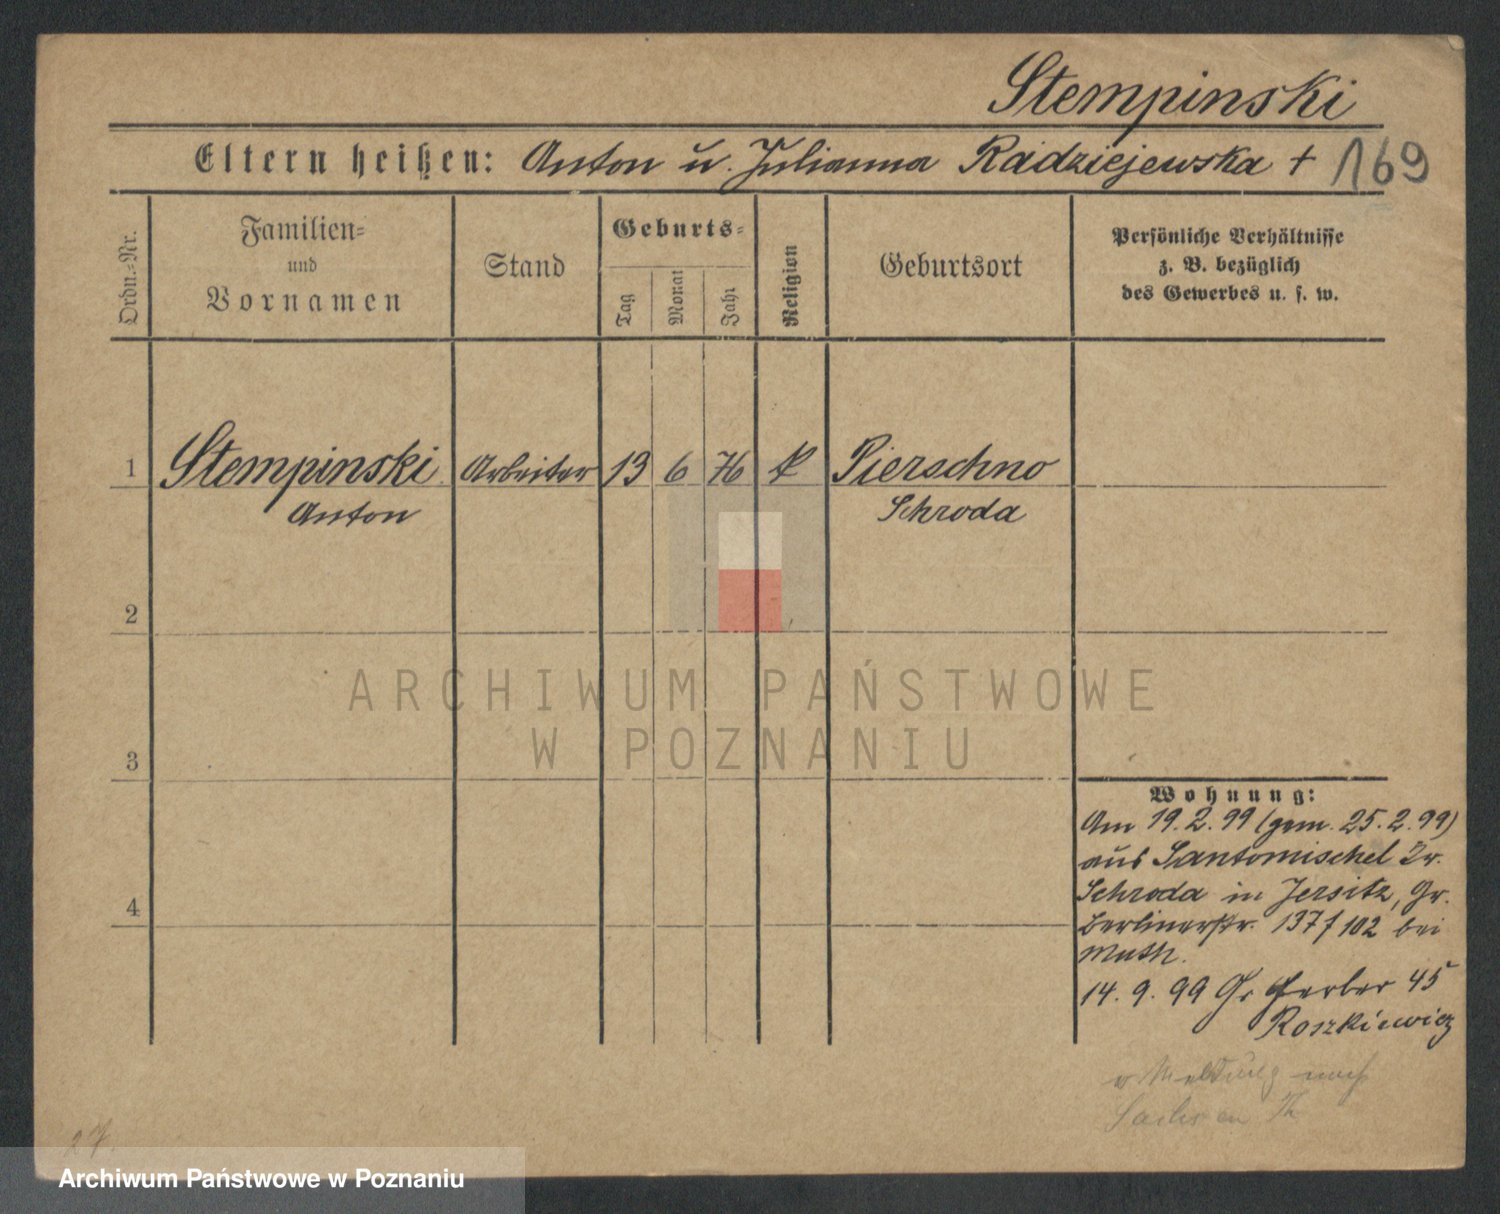 Stempinski
Eltern heißen: Anton u. Julianna Radziejewska † 169
Ordn.-Nr.
Familien-
und
Vornamen
Stand
Geburts-
Tag
Monat
Jahr
Religion
Geburtsort
Persönliche Verhältnisse
z. B. bezüglich
des Gewerbes u. s. w.
1 Stempinski Arbeiter 13 6 76 k Pierschno
Anton Schroda
2
ARCHIWUM PAŃSTWOWE
W POZNANIU
3
Wohnung:
Am 19.2.99 (gem. 25.2.99)
aus Santomischel Kr.
Schroda in Jersitz, Gr.
4
Berlinerstr. 137/102 bei
Muth.
14.9.99 Gr Gerber 45
Roszkiewicz
o Meldung nach
Sachsen Th
27.
Archiwum Państwowe w Poznaniu